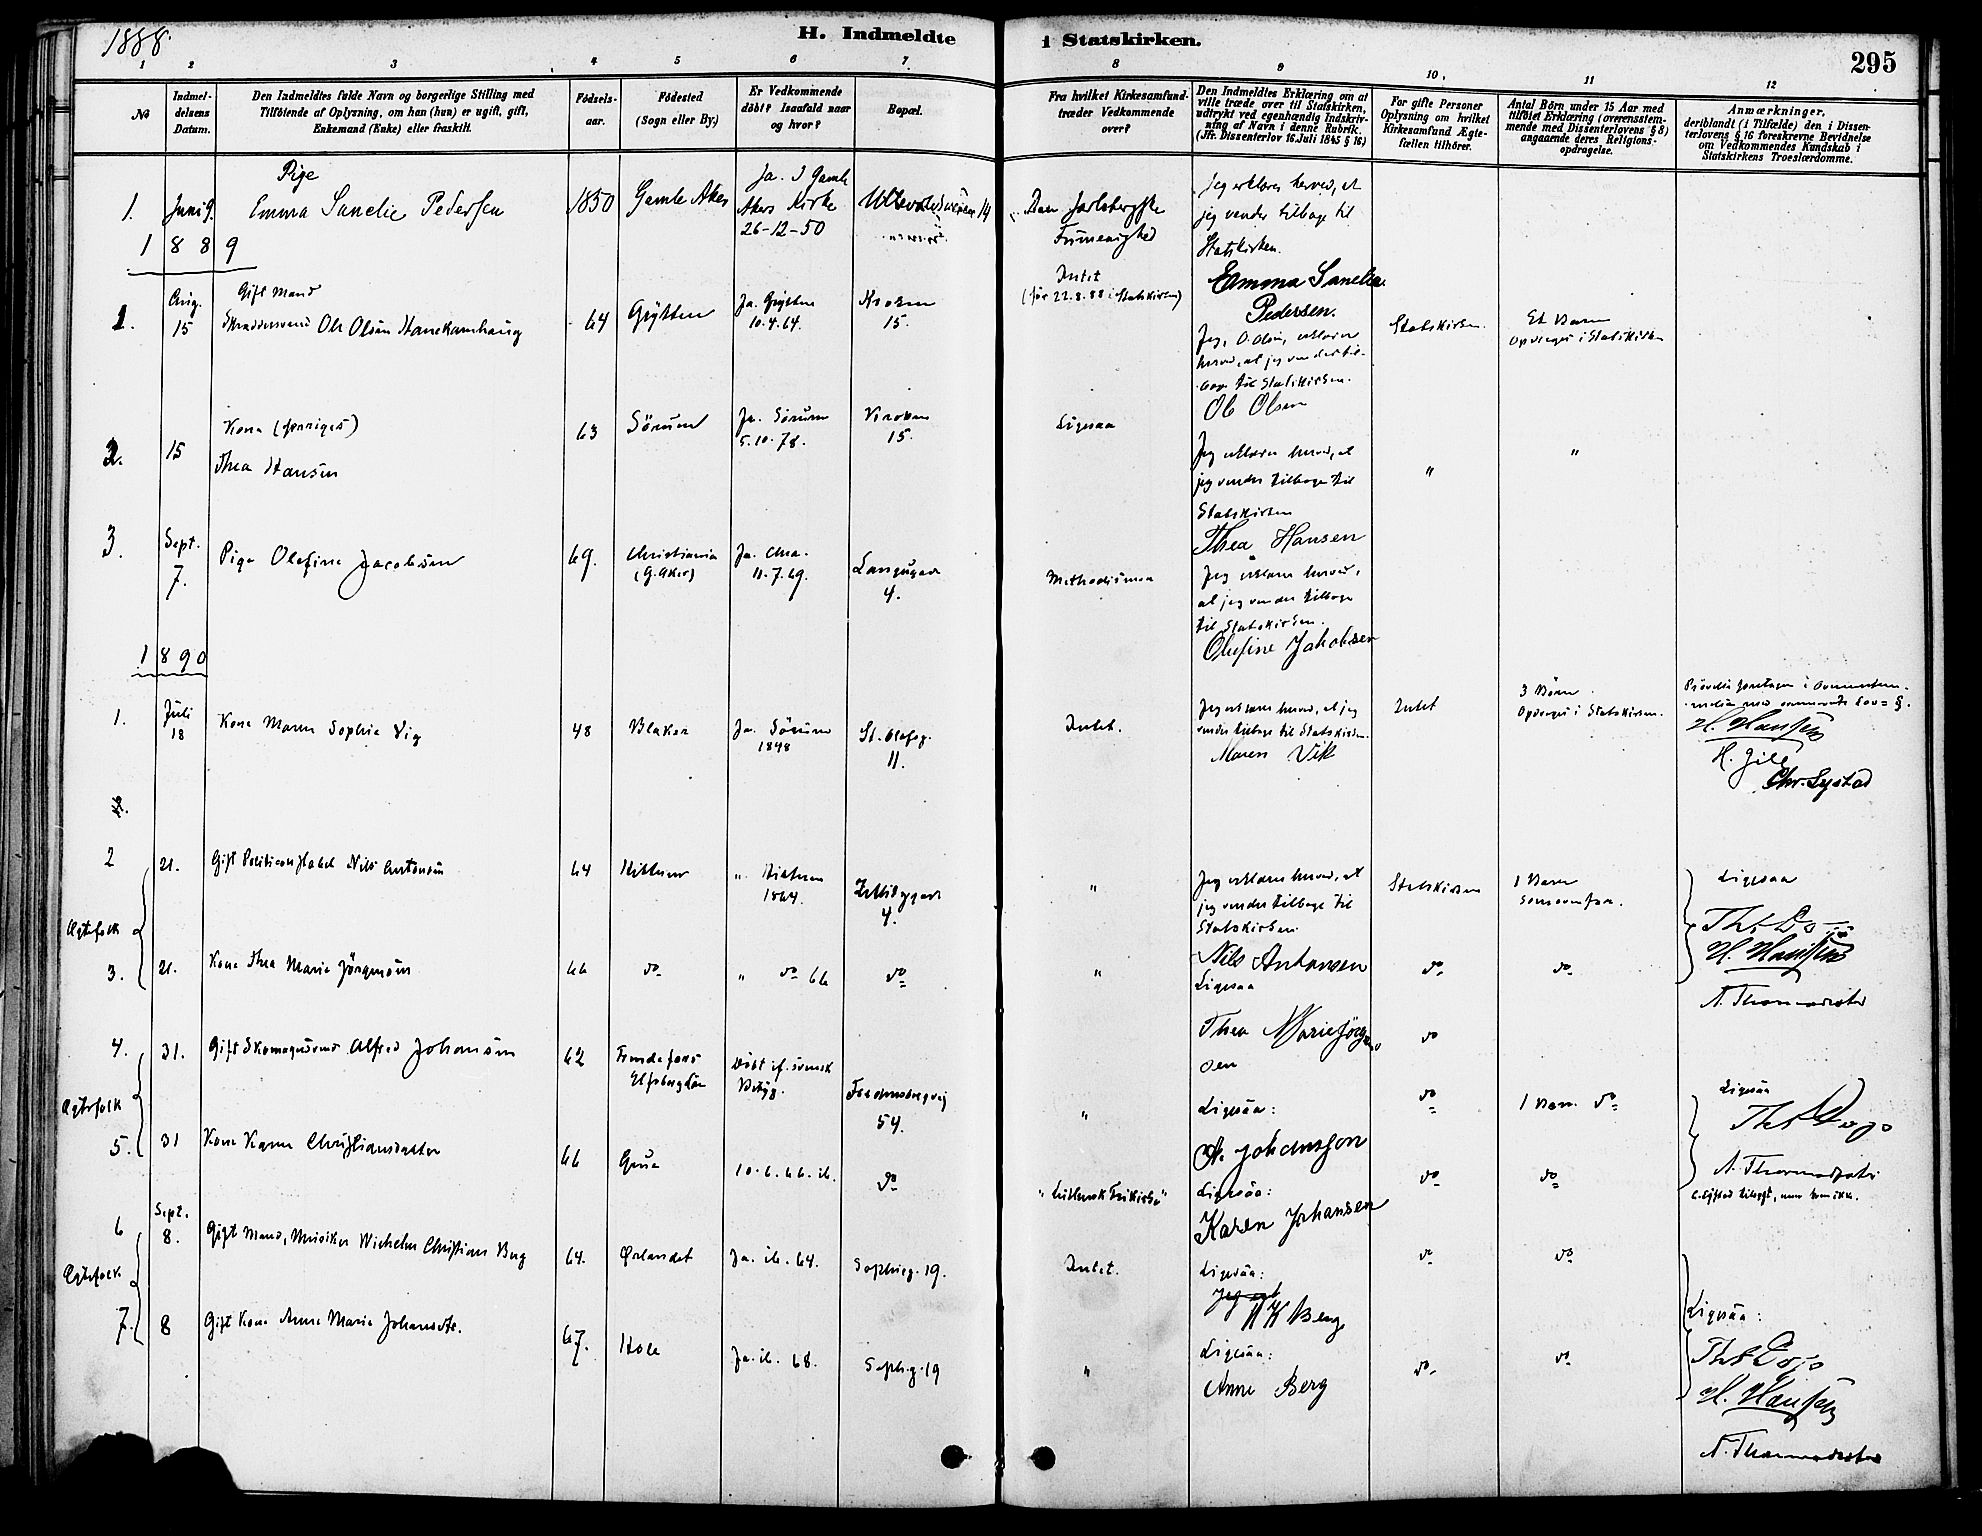 1888.
H. Indmeldte i Statskirken.
295
1 2 3 4 5 6 7 8 9 10. 11 12
No
Indmel-
delsens
Datum.
Den Indmeldtes fulde Navn og borgerlige Stilling med
Tilföiende af Oplysning, om han (hun) er ugift, gift,
Enkemand (Enke) eller fraskilt.
Födsels-
aar.
Födested
(Sogn eller By.)
Er Vedkommende
döbt? Isaafald naar
og hvor?
Bopæl.
Fra hvilket Kirkesamfund
træder Vedkommende
over?
Den Indmeldtes Erklæring om at
ville træde over til Statskirken,
udtrykt ved egenhændig Indskriv-
ning af Navn i denne Rubrik.
(Jfr. Dissenterlov 16 Juli 1845 § 16)
For gifte Personer
Oplysning om hvilket
Kirkesamfund Ægte-
fællen tilhörer.
Antal Börn under 15 Aar med
tilföiet Erklæring (overensstem-
mende med Dissenterlovens § 8)
angaaende deres Religions-
opdragelse.
Anmærkninger,
deriblandt (i Tilfælde) den i Dissen-
terlovens § 16 foreskrevne Bevidnelse
om Vedkommendes Kundskab i
Statskirkens Troeslærdomme.
1. Juni 9.
Pige
Emma Sanelie Pedersen
1850
Gamle Aker
Ja. I Gamle
Akers Kirke
26-12-50
14
Den Jarlsbergske
Frimenighed
Jeg erklærer herved, at
jeg vender tilbage til
Statskirken.
Emma Sanelie
Pedersen.
1889
1. Aug. 15
Gift Mand
Skræddersvend Ole Olsen Hanekamhaug
64
Grytten
Ja. Grytten
10.4.64.
Kroken
15.
Intet
(før 22.8.88 i Statskirken)
Jeg, O. Olsen, erklærer
herved, at jeg vender til-
bage til Statskirken.
Ole Olsen
Statskirken.
Et Barn
Opdrages i Statskirken
2. 15
Kone (forriges)
Thea Hansen
63
Sörum
Ja. Sörum
5.10.78.
Kroken
15.
Ligesaa
Jeg erklærer herved, at
jeg vender tilbage til
Statskirken
Thea Hansen
"
"
3. Sept. 7.
Pige Olefine Jacobsen
69.
Christiania
(G. Aker)
Ja. Chra.
11.7.69.
Langesgade
4.
Methodismen
Jeg erklærer herved,
at jeg vender tilbage
til Statskirken.
Olefine Jakobsen
1890
1. Juli 18
Kone Maren Sophie Vig
48
Blaker
Ja. Sörum
1848
St. Olafsg.
11.
Intet.
Jeg erklærer herved, at jeg
vender tilbage til Statskirken.
Maren Vik
Intet
3 Börn
Opdrages i Statskirken.
H. Hansen
Chr. Lystad
Ægtefolk
2 21.
Gift Politiconstabel Nils Antonsen
64
"
1864.
4.
"
Jeg erklærer herved, at
jeg vender tilbage til
Statskirken.
Nils Antonsen
Statskirken
1 Barn
som ovenfor.
Ligesaa
H. Hansen
3. 21.
Kone Thea Marie Jörgensen
66
do
" do 66
do
"
Ligesaa
Thea Marie Jörgen
sen
do
do
Ægtefolk
4. 31.
Gift Skomagersvend Alfred Johansen
62
Döbt if. svensk
54.
"
Ligesaa:
A. Johansson
do
1 Barn do
Ligesaa
5. 31
Kone Karen Christiansdatter
66
Grue
10.6.66. ib.
do
"Luthersk Frikirke"
Ligesaa:
Karen Johansen
do
do
Ægtefolk
6 Sept. 8.
Gift Mand, Musiker Wilhelm Christian Berg
64.
Ørlandet
Ja. ib. 64.
Sophieg. 19.
Intet.
Ligesaa:
Berg
do
do
Ligesaa:
7. 8
Gift Kone Anne Marie Johansdtr.
67.
Hole
Ja. ib. 68.
Sophieg. 19
"
Ligesaa:
Anne Berg
do
do
H. Hansen